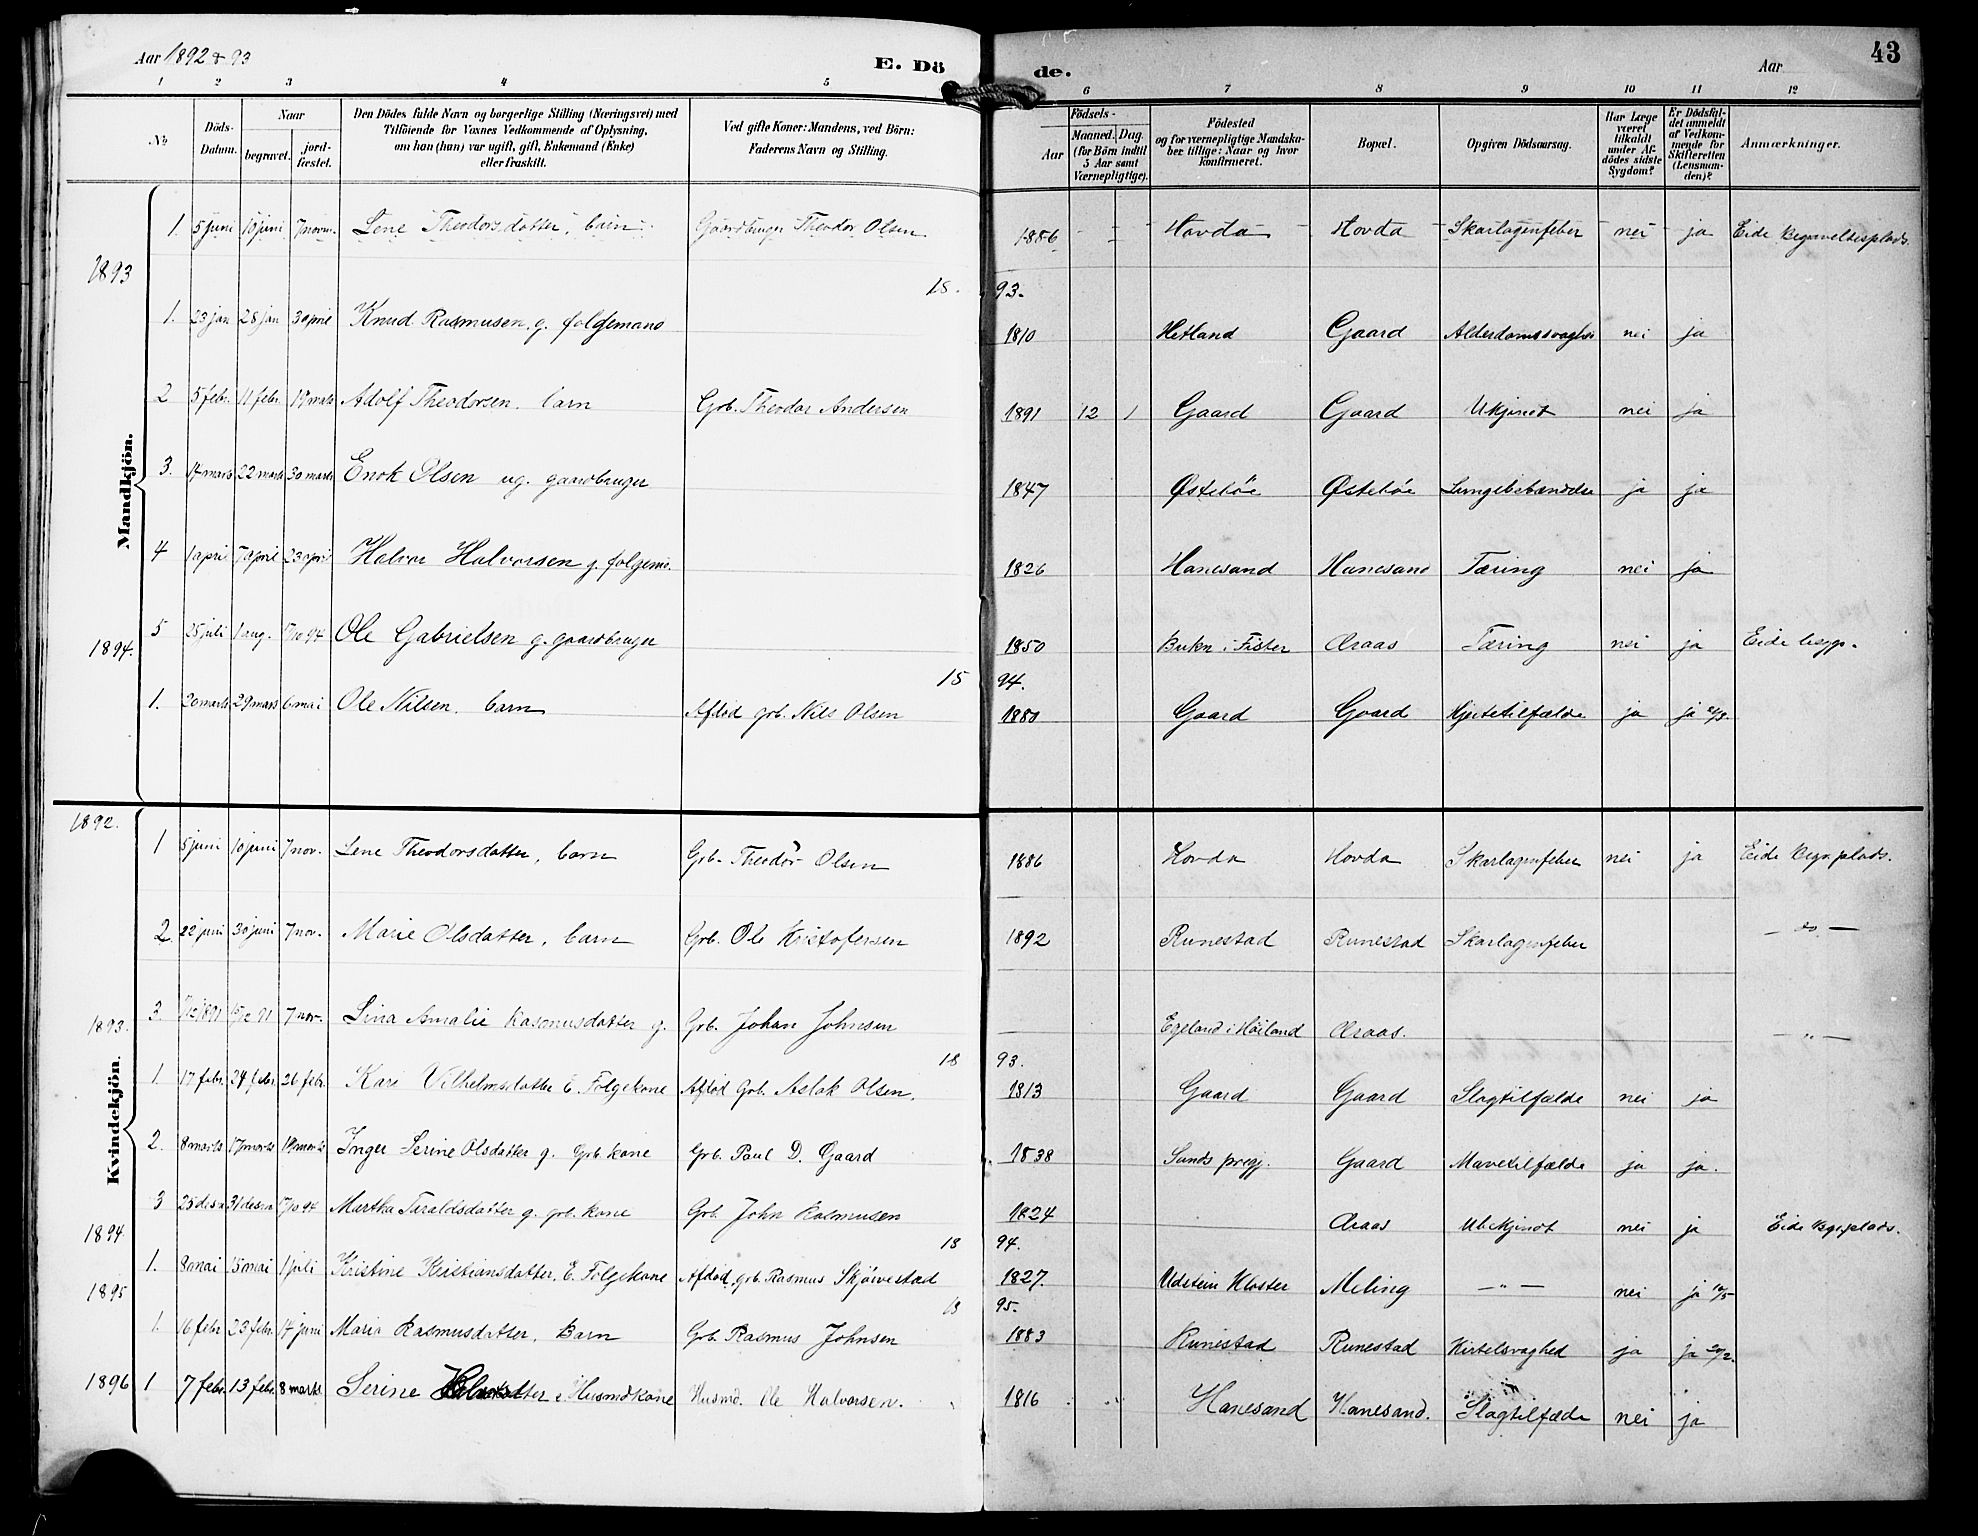 Aar 1892 & 93
E. Dö
de.
Aar
43
1 2 3 4 5 6 7 8 9 10 11 12
No.
Döds-Datum.
Naar
begravet.
jordfæstet.
Den Dödes fulde Navn og borgerlige Stilling (Næringsvei) med
Tilföiende for Voxnes Vedkommende af Oplysning,
om han (hun) var ugift, gift, Enkemand (Enke)
eller fraskilt.
Ved gifte Koner: Mandens, ved Börn:
Faderens Navn og Stilling.
Födsels-
Aar
Maaned.
Dag.
(for Börn indtil
5 Aar samt
Værnepligtige).
Födested
og for værnepligtige Mandskaber tillige: Naar og hvor
konfirmeret.
Bopæl.
Opgiven Dödsaarsag.
Har Læge
været
tilkaldt
under Afdödes sidste
Sygdom?
Er Dödsfaldet anmeldt
af Vedkommende for
Skifteretten
(Lensmanden)?
Anmærkninger.
Mandkjön.
1. 5 juni 10 juni 7 novm. Lene Theodorsdatter, barn. Gaardbruger Theodor Olsen 1886 Hovda Hovda Skarlagenfeber nei ja Eide Begravelsesplads.
1893
18. 93.
1. 23 jan 28 jan 3 april Knud Rasmusen, g. folgemand 1810 Hetland Gaard Alderdomssvaghed nei ja
2 5 febr. 11 febr. 19 marts Adolf Theodorsen. barn Grb. Theodor Andersen 1891 12 1 Gaard Gaard Ukjendt nei ja
3. 17 marts 22 marts 30 marts Enok Olsen ug. gaardbruger 1847 Østebøe Østebøe Lungebetændelse ja ja
4 1 april 7 april 23 april Halvor Halvorsen g. folgemd. 1826 Hanesand Hanesand Tæring nei ja
5 25 juli 1 aug. 17/10 94 Ole Gabrielsen g. gaardbruger 1850 Bukn i Fister Araas Tæring nei ja Eide begrp.
1894.
15 94.
1. 20 marts 29 mars 6 mai Ole Nilsen. barn Afdød grb. Nils Olsen 1880 Gaard Gaard Hjertetilfælde ja ja
Kvindekjön.
1892.
1 5 juni 10 juni 7 nov. Lene Theodorsdatter, barn Grb. Theodor Olsen 1886 Hovda Hovda Skarlagenfeber nei ja Eide Begr.plads.
2. 22 juni 30 juni 7 nov. Marie Olsdatter, barn Grb. Ole Kristofersen 1892 Runestad Runestad Skarlagenfeber — do. —
3. 7/12 1891 15/12 91 7 nov. Lina Amalie Rasmusdatter g. Grb. Johan Johnsen Egeland i Høiland Araas. — „ —
1893.
18 93.
1. 17 febr. 24 febr. 26 febr. Kari Vilhelmsdatter E. Folgekone Afdød Grb. Aslak Olsen. 1813 Gaard Gaard Slagtilfælde nei ja
2. 8 marts 17 marts 19 marts Inger Serine Olsdatter g. Grb. kone Grb. Paul D. Gaard 1838 Sunds pregj. Gaard Mavetilfælde ja ja.
3 25 desm 31 desm 17/10 94 Martha Taraldsdatter g. grb. kone Grb. John Rasmusen 1824 Araas Ubekjendt nei ja Eide Bgr.plads.
1894
18 94.
1. 8 mai 15 mai 1 juli Kristine Kristiansdatter, E. Folgekone Afdød grb. Rasmus Skjørvestad 1827. Udstein Kloster Meling — „ — nei ja
1895
18 95.
1. 16 febr 23 febr. 14 juni Maria Rasmusdatter, Barn Grb. Rasmus Johnsen 1883 Runestad Runestad Kirtelsvaghed ja ja
1896 1 7 febr. 13 febr. 8 marts Serine e. Husmdkone Husmd. Ole Halvorsen. 1816 Hanesand Hanesand. Slagtilfælde nei ja